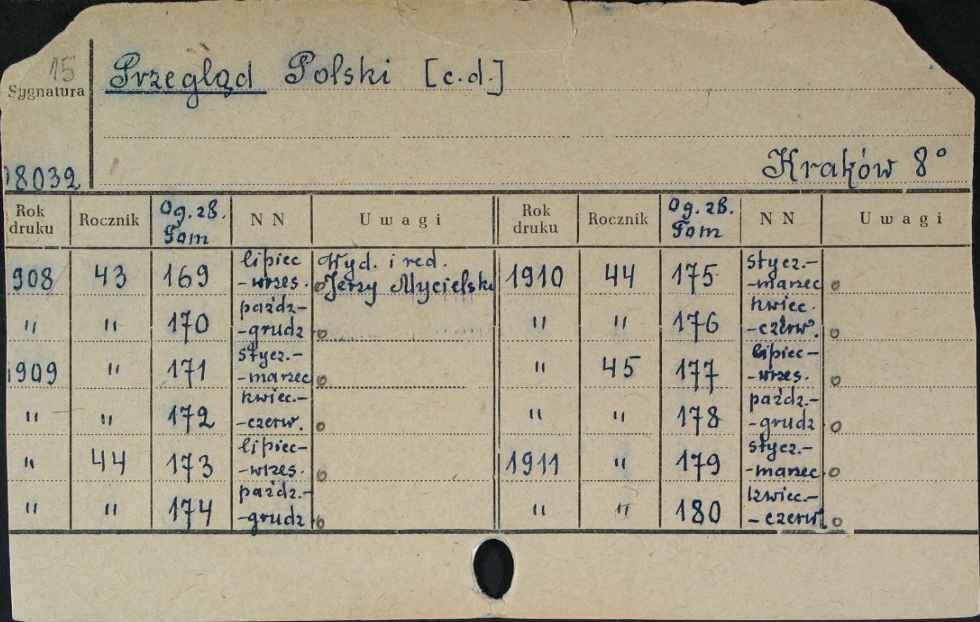 15
Przegląd Polski [c.d.]
Sygnatura
Kraków 8°
8039
Rok druku Rocznik Og. zb. Tom NN Uwagi Rok druku Rocznik Og. zb. Tom NN Uwagi
908 43 169 lipiec -wrzes. Wyd. i red. Jerzy Mycielski 1910 44 175 stycz.- -marzec
" " 170 paźdz- -grudz " " 176 kwiec. -czerw.
1909 " 171 stycz.- -marzec " 45 177 lipiec- -wrzes.
" " 172 kwiec.- -czerw. " " 178 paźdz.- -grudz
" 44 173 lipiec- -wrzes. 1911 " 179 stycz.- -marzec
" " 174 paźdz.- -grudz " " 180 kwiec.- -czerw.